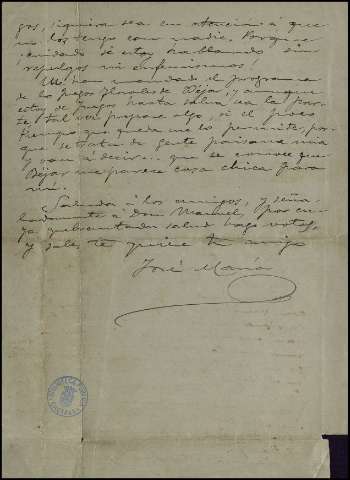 gos, siquiera sea en atención á que
no los tengo con nadie. Porque
¡cuidado si estoy hablando sin
repulgos ni eufemismos!
Me han mandado el programa
de los Juegos Florales de Béjar, y aunque
estoy de Juegos hasta salva sea la par-
te, tal vez prepare algo, si el poco
tiempo que queda me lo permite, por-
que se trata de gente paisana mía
y van á decir... que se conoce que
Béjar me parece casa chica para
mí.
Saluda á los amigos, y seña-
ladamente á Don Manuel, por cu-
ya quebrantada salud hago votos,
y sabes te quiere tu amigo
José María
BIBLIOTECA PÚBLICA